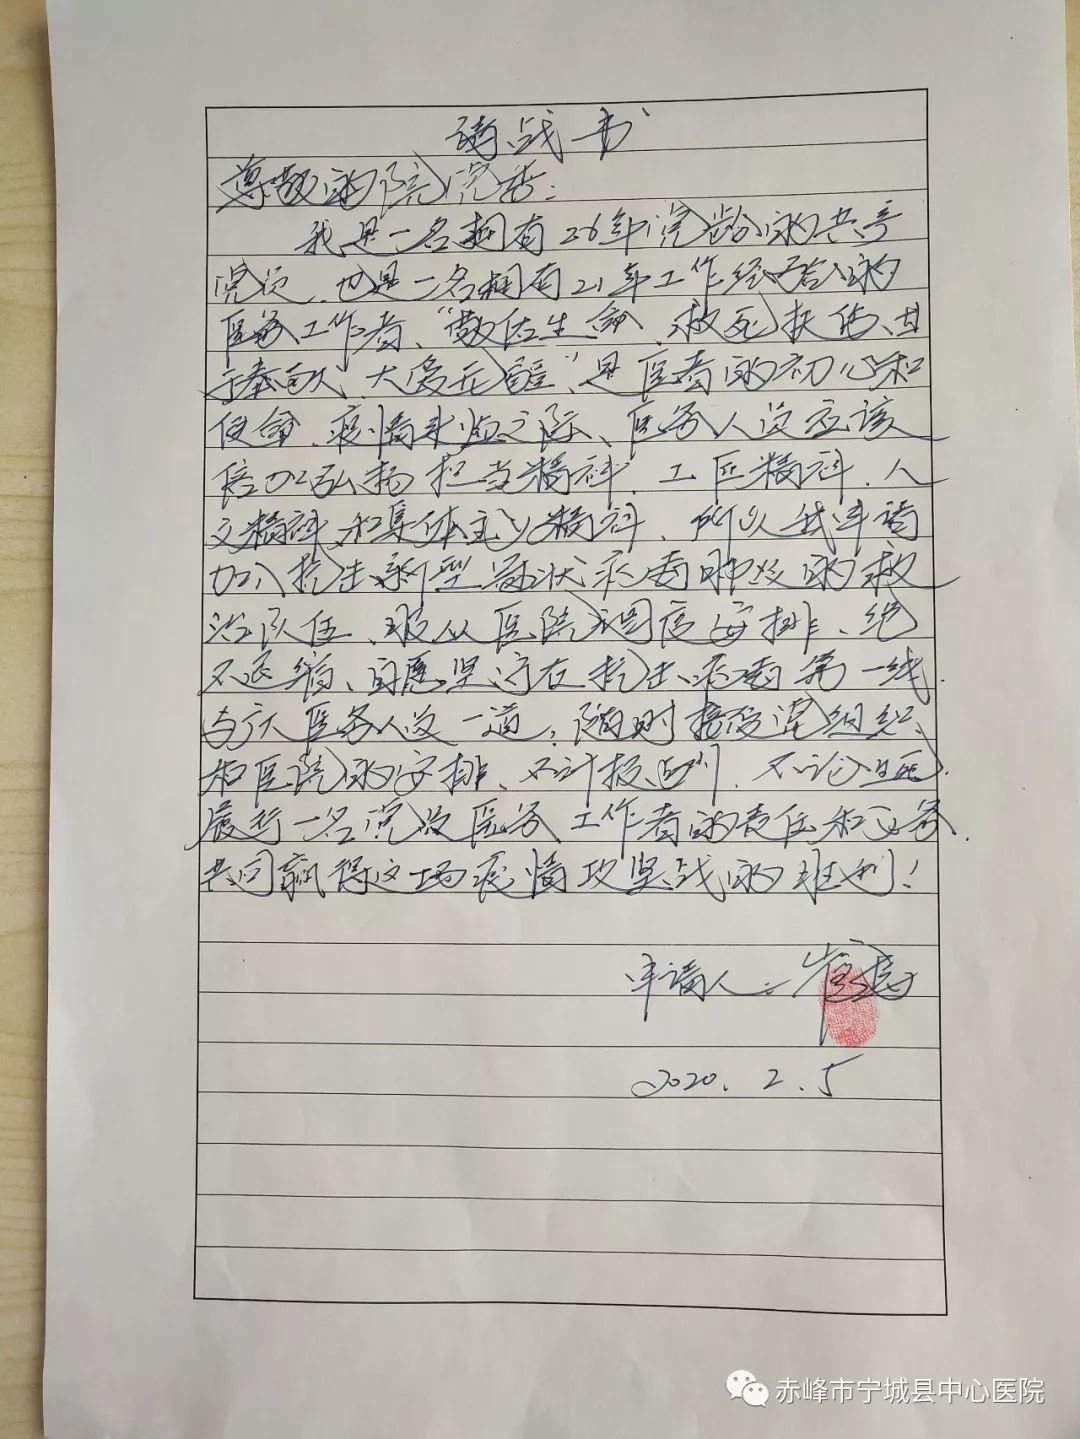 请战书
尊敬的院党委：
我是一名拥有26年党龄的共产
党员，也是一名拥有21年工作经验的
医务工作者、“敬佑生命、救死扶伤、甘
于奉献、大爱无疆”，是医者的初心和
使命，疫情来临之际、医务人员应该
倍加弘扬担当精神，工匠精神，人
文精神和集体主义精神，所以我申请
加入抗击新型冠状病毒肺炎的救
治队伍、服从医院安排、绝
不退缩、自愿坚守在抗击病毒第一线
与广大医务人员一道，随时接受党组织
和医院的安排、不计报酬，不论生死，
履行一名党员医务工作者的责任和义务
共同赢得这场疫情攻坚战的胜利！
申请人：崔
2020.2.5
赤峰市宁城县中心医院